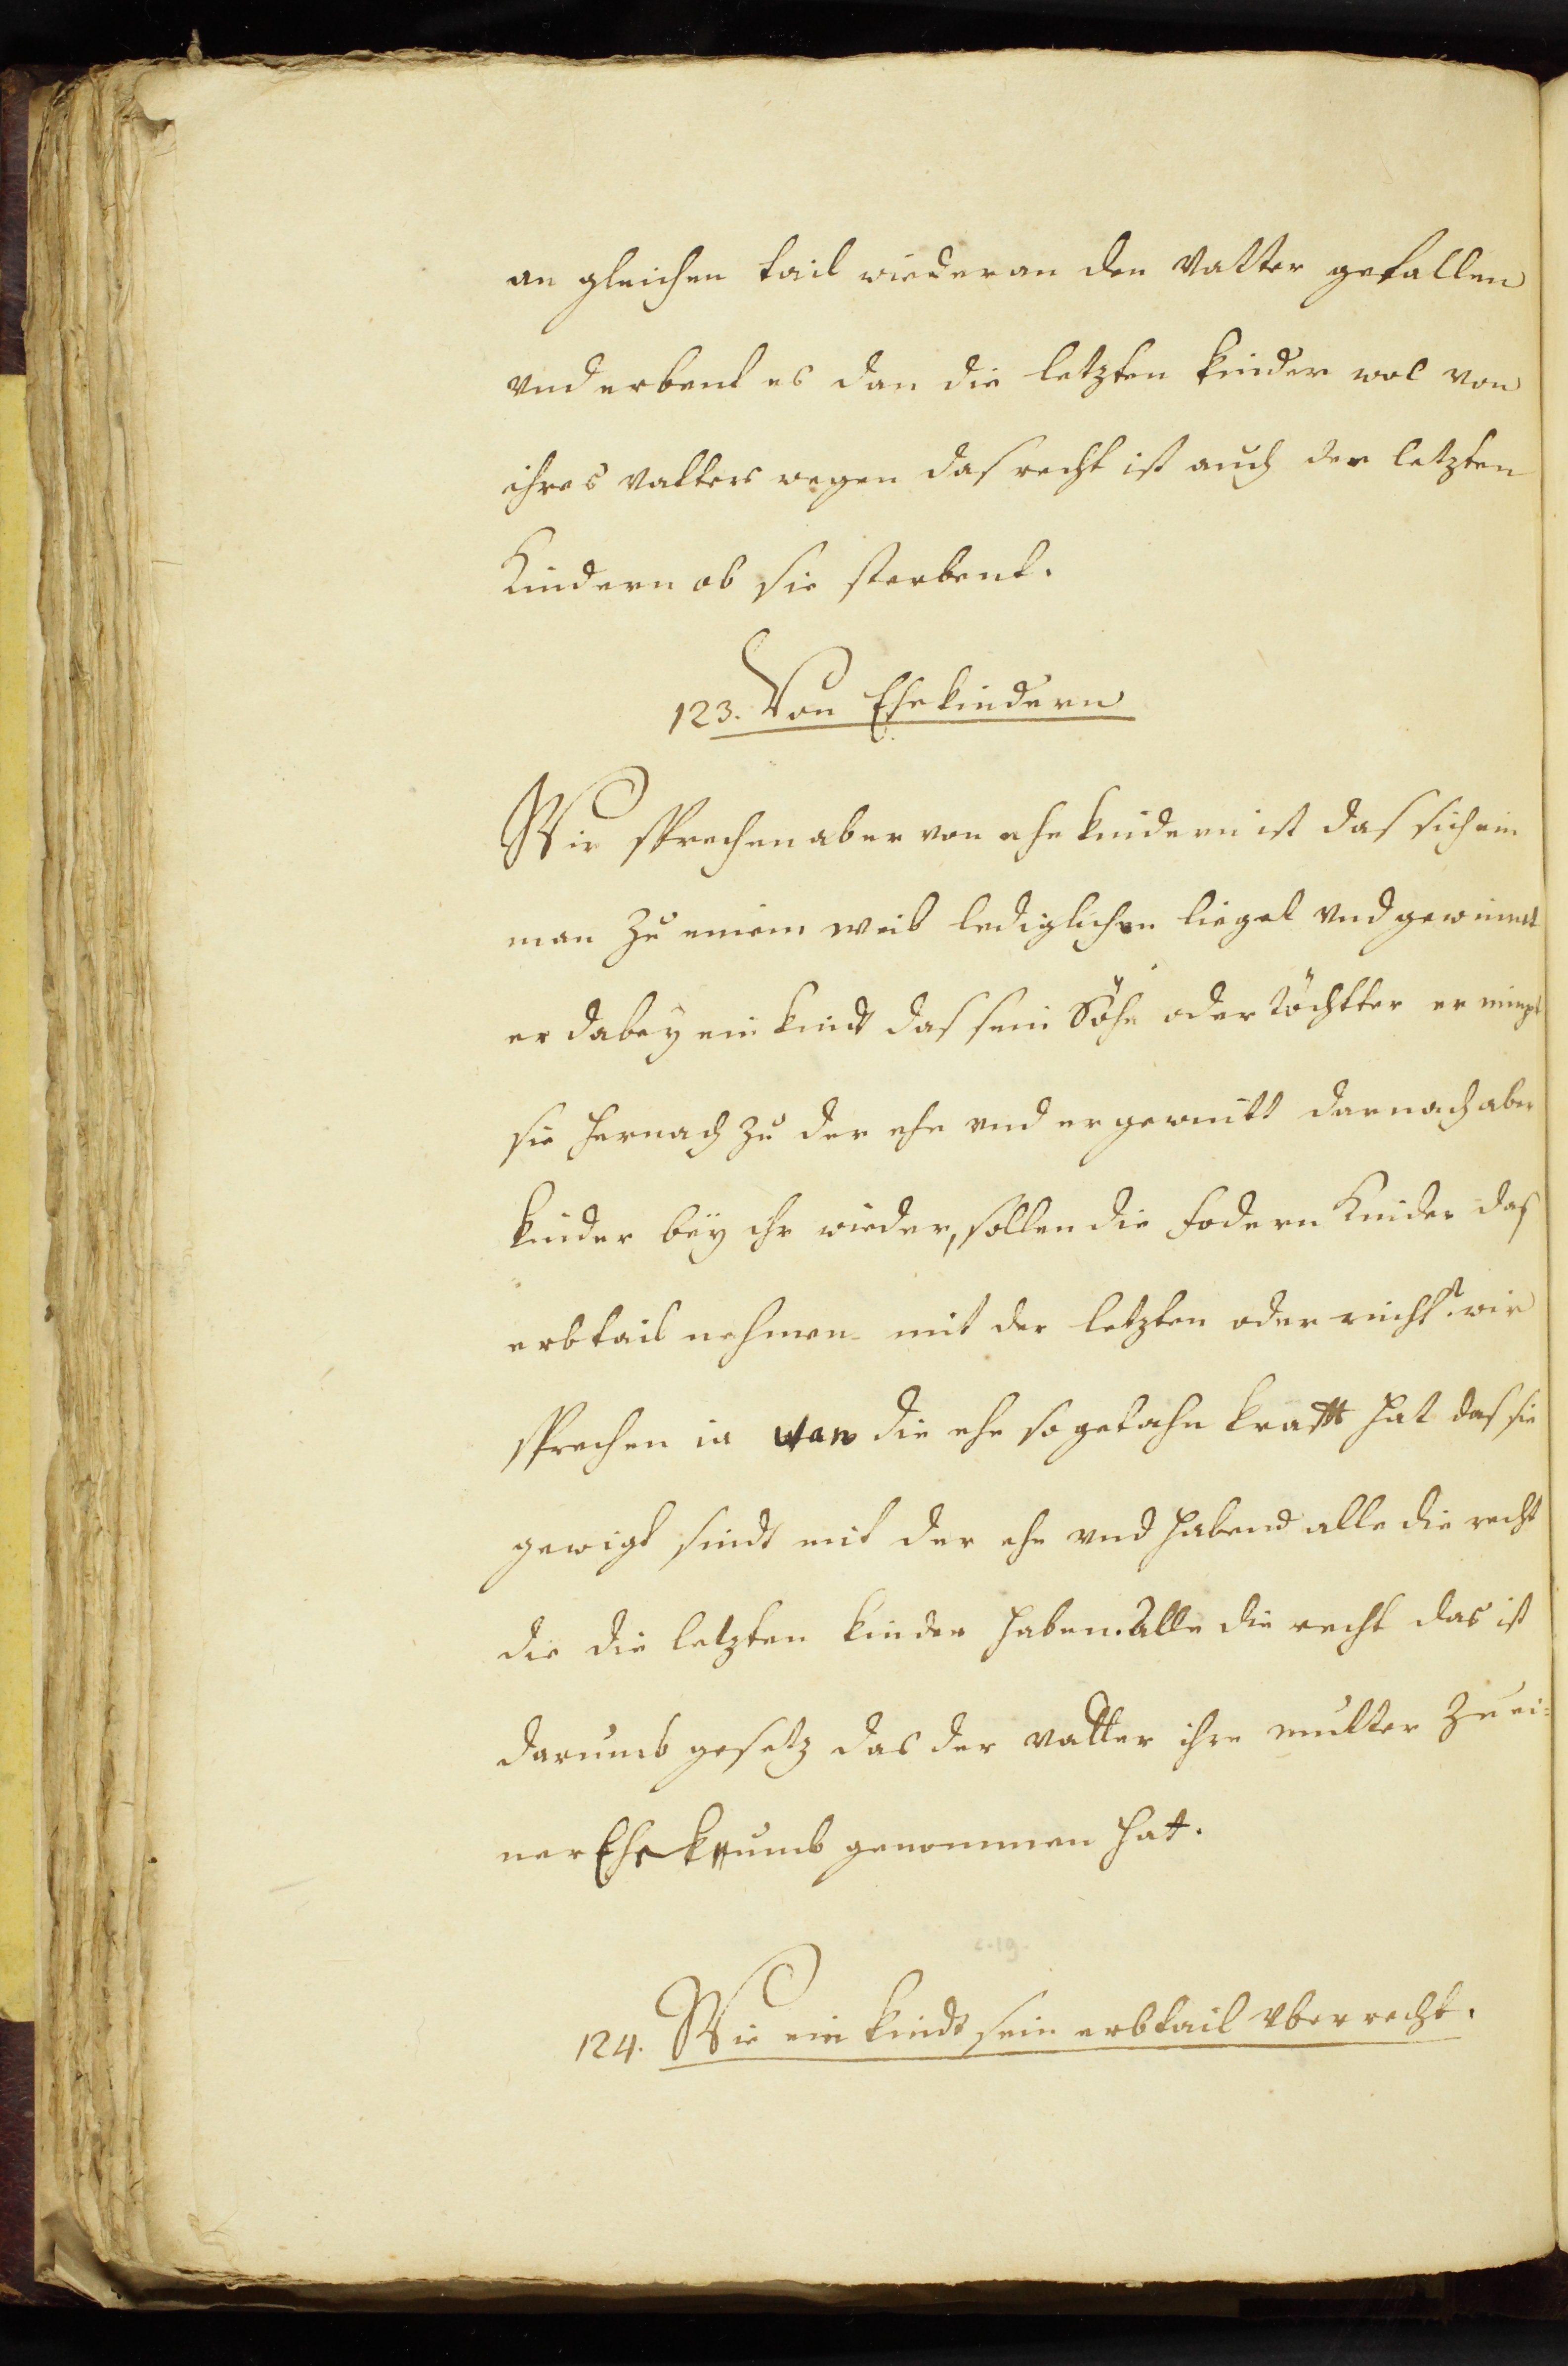 an gleichen tail wieder an den Vatter gefallen
vnd erbent es dan die letzten kinder wol von
ihres vatters wegen das recht ist auch der letzten
Kindern ob sie sterbent.
123. Von Ehekindern
Wir sprechen aber von ehe kindern ist das sich ein
man zu einem weib lediglichen lieget vnd gewinnet
er dabeÿ ein kindt das sein Söhn oder töchtter er nimpt
sie hernach zu der ehe vnd er gewint darnach aber
kinder beÿ ihr wieder, sollen die fodern Kinder das
erbtail nehmen mit der letzten oder nicht? wir
sprechen ia wan die ehe so getahn krafft hat das sie
gewigt sindt mit der ehe vnd habend alle die recht
die die letzten kinder haben. Alle die recht das ist
darumb gesetz das der vatter ihre mutter zu ei=
ner genommen hat.
c. 19.
124. Wie ein kindt sein erbtail vberrecht.